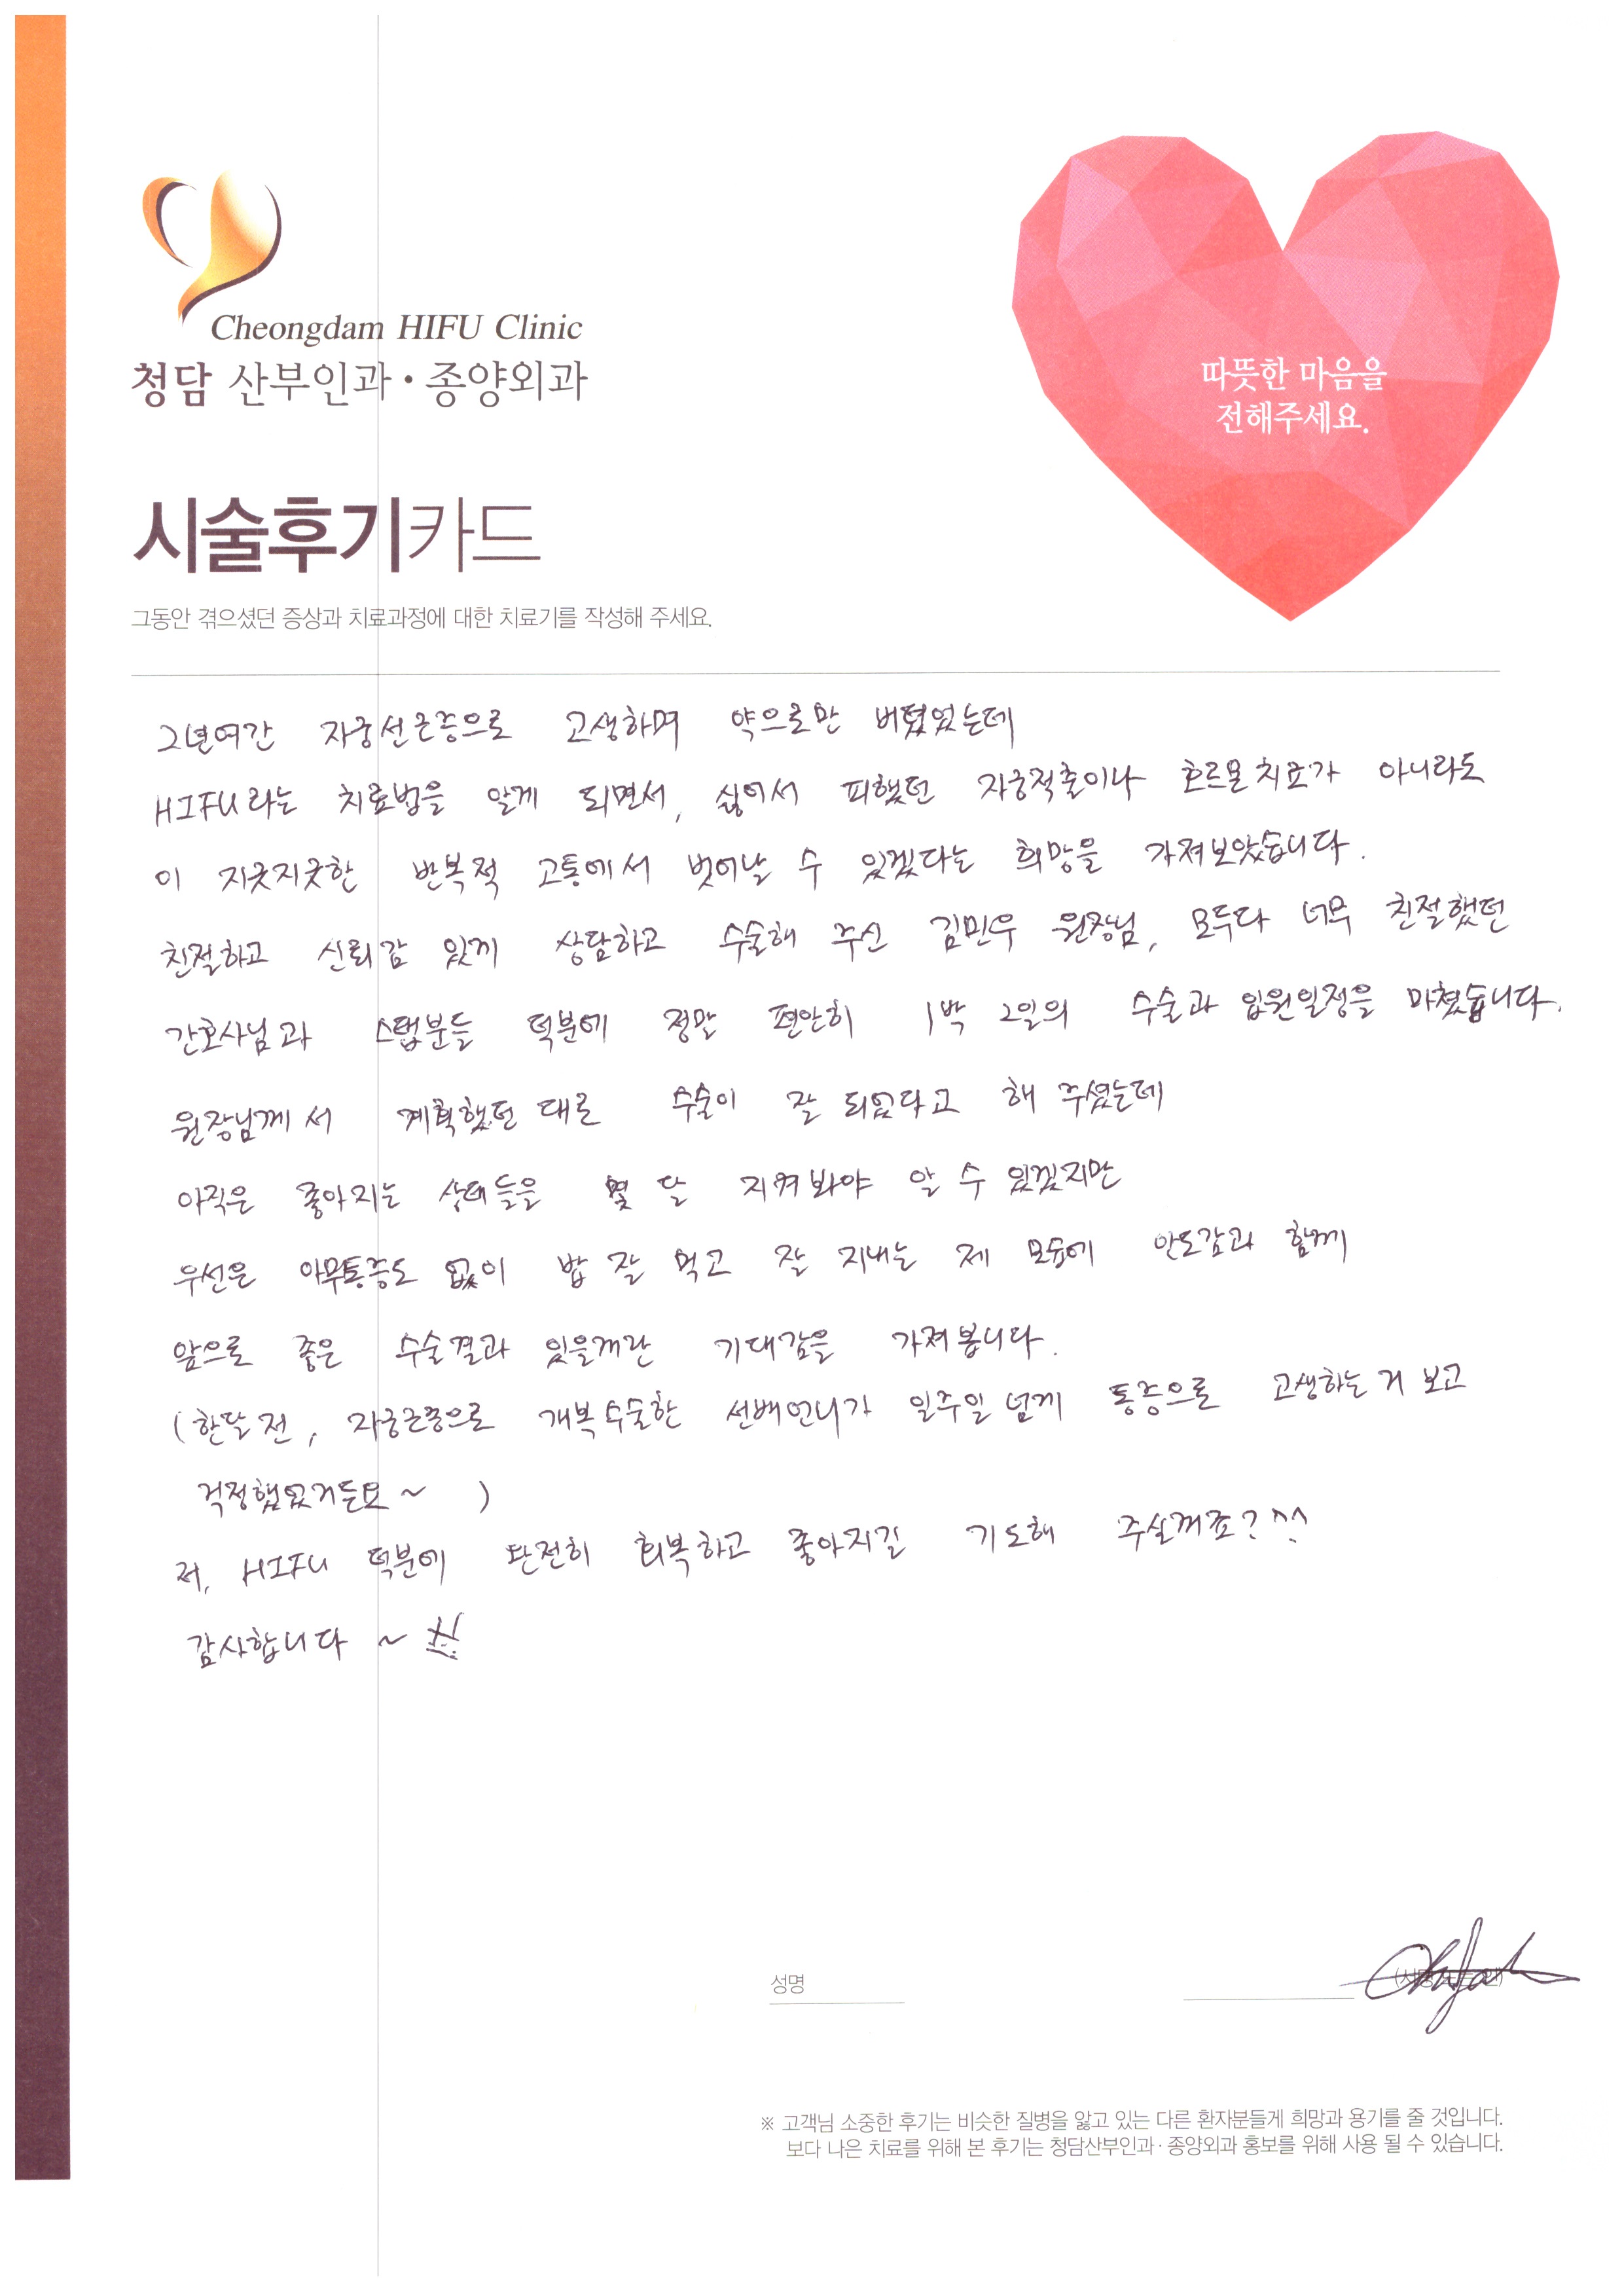 Cheongdam HIFU Clinic
청담 산부인과·종양외과
따뜻한 마음을
전해주세요.
시술후기카드
그동안 겪으셨던 증상과 치료과정에 대한 치료기를 작성해 주세요.
2년여간 자궁선근증으로 고생하며 약으로만 버텼었는데
HIFU라는 치료법을 알게 되면서, 싫어서 피했던 자궁적출이나 호르몬치료가 아니라도
이 지긋지긋한 반복적 고통에서 벗어날 수 있겠다는 희망을 가져보았습니다.
친절하고 신뢰감 있게 상담하고 수술해 주신 김민우 원장님, 모두다 너무 친절했던
간호사님과 스탭분들 덕분에 정말 편안히 1박 2일의 수술과 입원일정을 마쳤습니다.
원장님께서 계획했던 대로 수술이 잘 되었다고 해 주셨는데
아직은 좋아지는 상태들을 몇 달 지켜봐야 알 수 있겠지만
우선은 아무통증도 없이 밥 잘 먹고 잘 지내는 제 모습에 안도감과 함께
앞으로 좋은 수술결과 있을꺼란 기대감을 가져봅니다.
(한달 전, 자궁근종으로 개복수술한 선배언니가 일주일 넘게 통증으로 고생하는 거 보고
걱정했었거든요~ )
저, HIFU 덕분에 완전히 회복하고 좋아지길 기도해 주실꺼죠?^^
감사합니다 ~
성명
※ 고객님 소중한 후기는 비슷한 질병을 앓고 있는 다른 환자분들게 희망과 용기를 줄 것입니다.
보다 나은 치료를 위해 본 후기는 청담산부인과·종양외과 홍보를 위해 사용 될 수 있습니다.